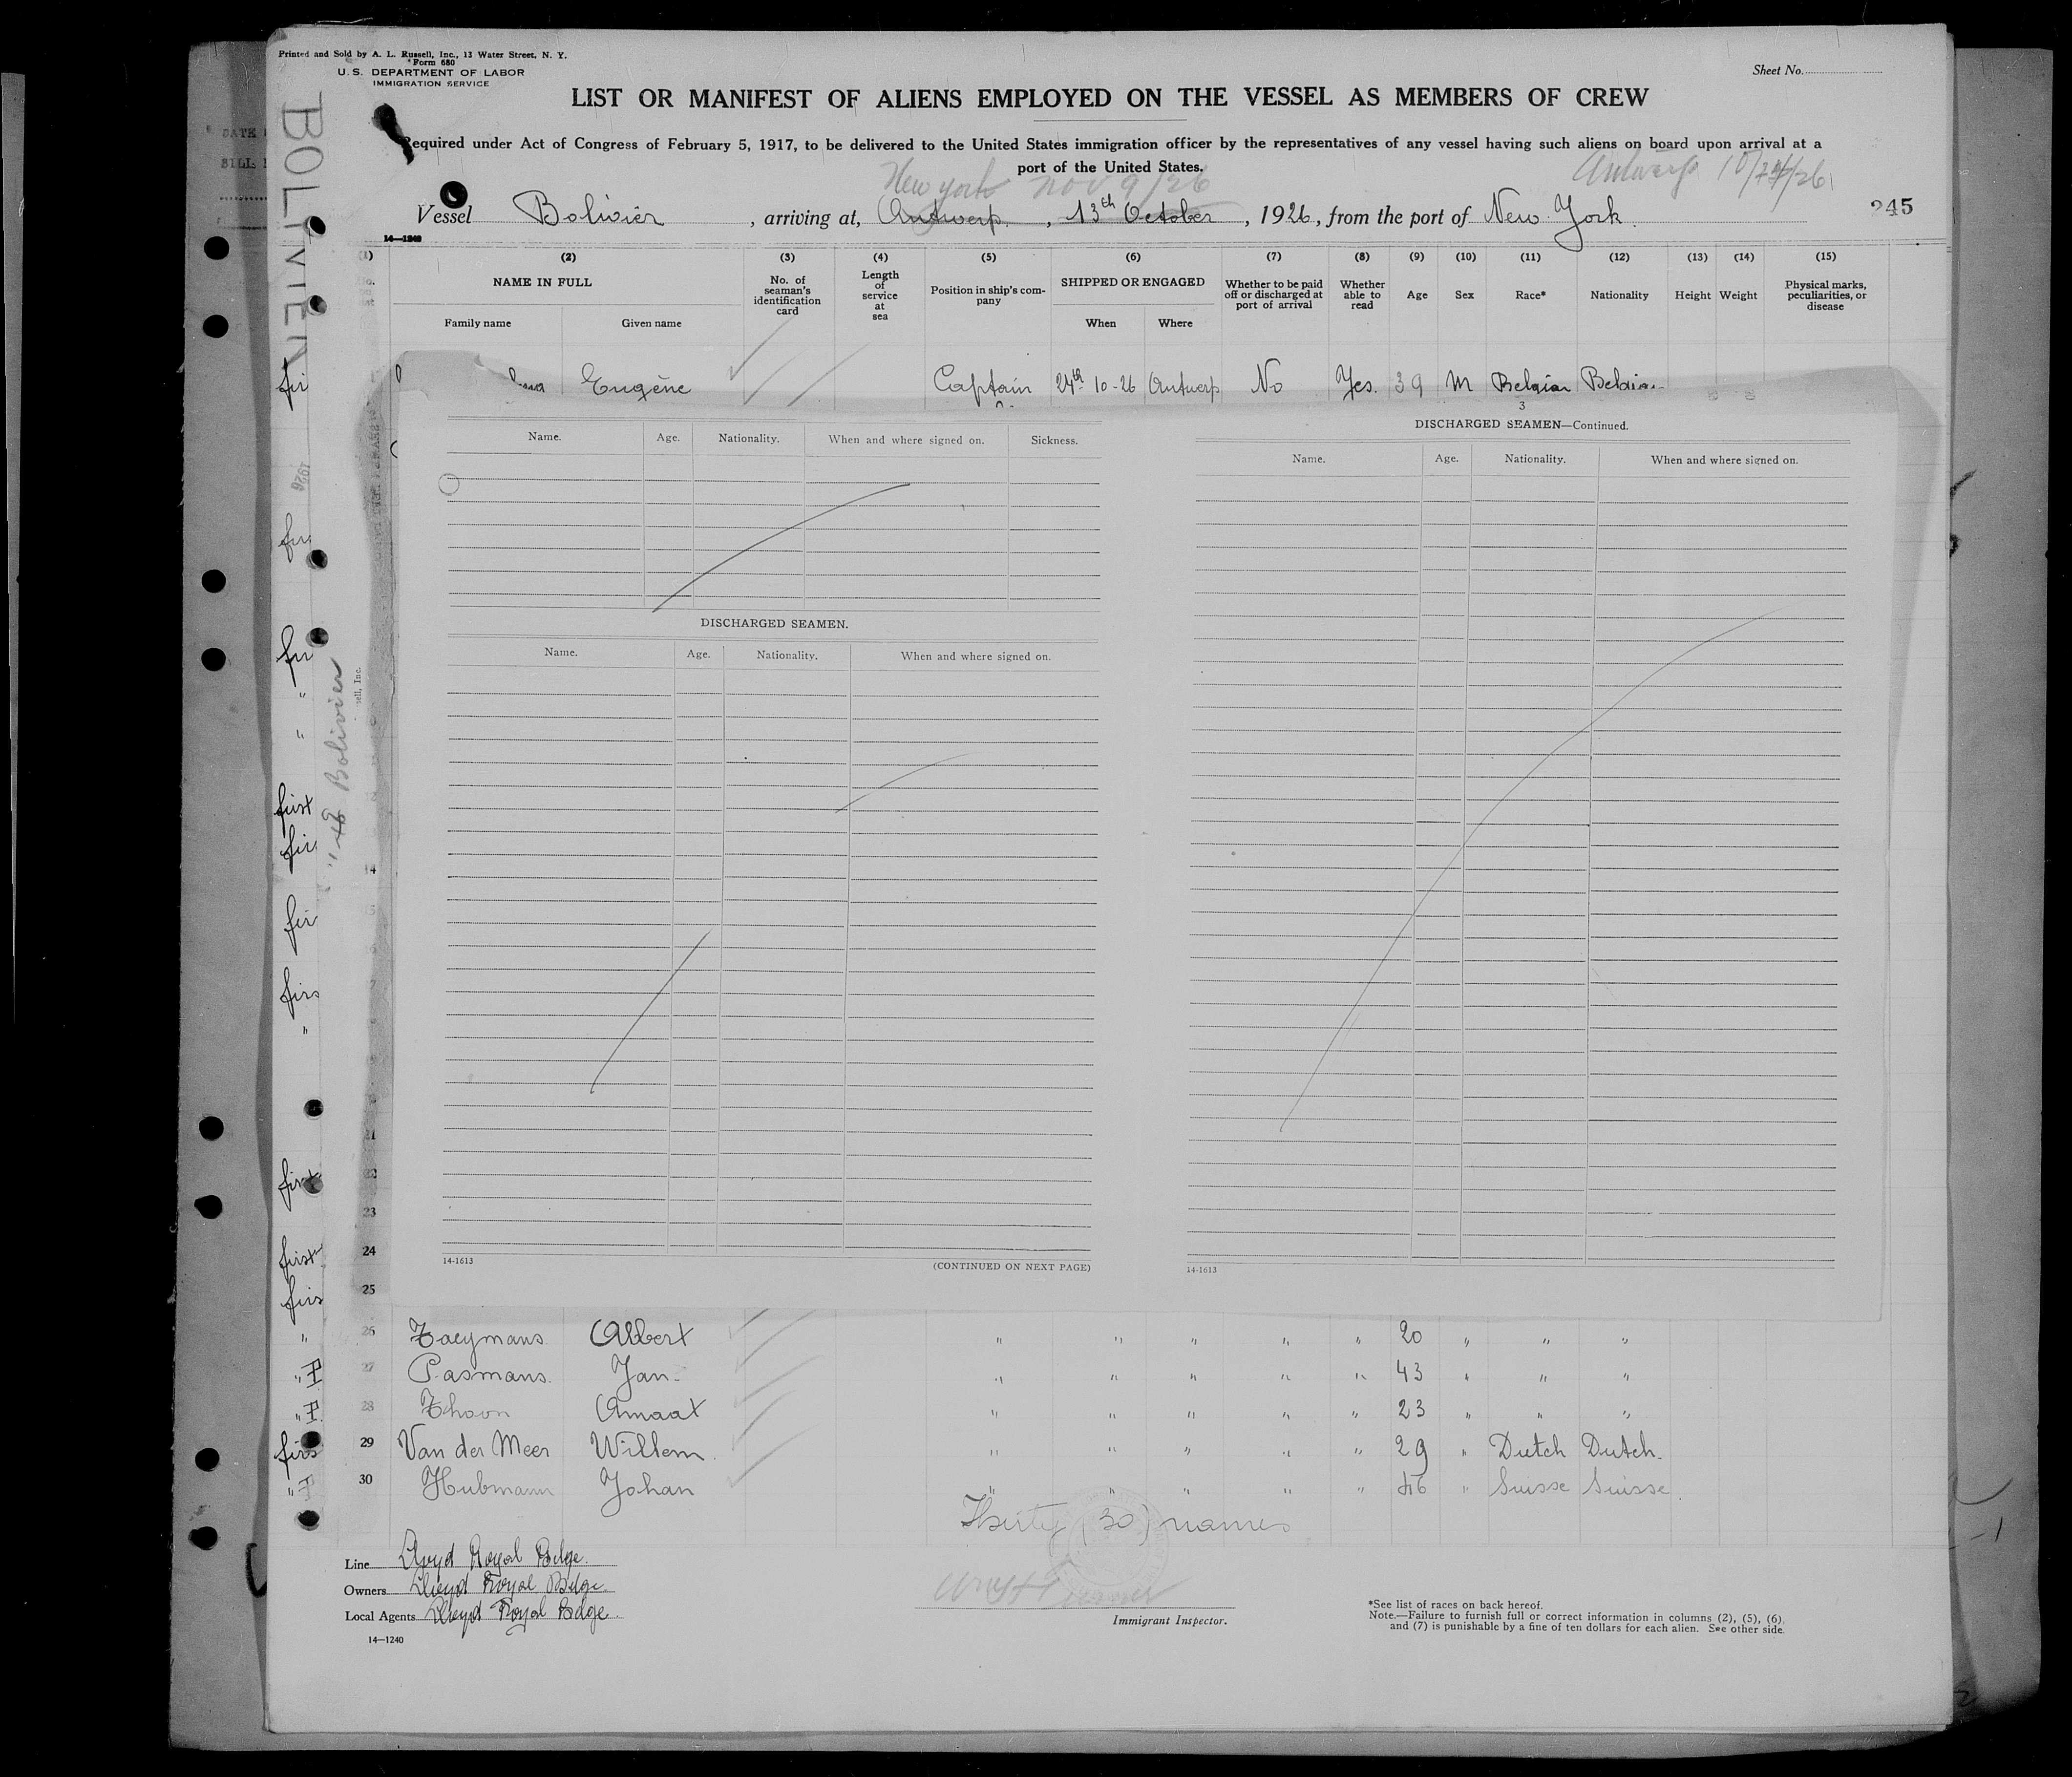 Printed and Sold by A. L. Russell, Inc., 13 Water Street, N. Y.
Form 680
U. S. DEPARTMENT OF LABOR
IMMIGRATION SERVICE
Sheet No.
LIST OR MANIFEST OF ALIENS EMPLOYED ON THE VESSEL AS MEMBERS OF CREW
Required under Act of Congress of February 5, 1917, to be delivered to the United States immigration officer by the representatives of any vessel having such aliens on board upon arrival at a
port of the United States.
New York Nov 9/26 Antwerp
Vessel Bolivier, arriving at, Antwerp, 13th October, 1926, from the port of New York.
245
14—1240
(1) (2) (3) (4) (5) (6) (7) (8) (9) (10) (11) (12) (13) (14) (15)
NAME IN FULL No. of seaman's identification card Length of service at sea Position in ship's company SHIPPED OR ENGAGED Whether to be paid off or discharged at port of arrival Whether able to read Age Sex Race* Nationality Height Weight Physical marks, peculiarities, or disease
Family name Given name When Where
Eugène Captain 24th 10-26 Antwerp No Yes. 39 M Belgian Belgian
3
Name. Age. Nationality. When and where signed on. Sickness.
DISCHARGED SEAMEN.
Name. Age. Nationality. When and where signed on.
14-1613
(CONTINUED ON NEXT PAGE)
DISCHARGED SEAMEN—Continued.
Name. Age. Nationality. When and where signed on.
14-1613
14
21
23
24
25
26 Taeymans Albert " " " " " 20 " " "
27 Pasmans. Jan " " " " " 43 " " "
28 Thoon Amaat " " " " " 23 " " "
29 Van der Meer Willem. " " " " " 29 " Dutch Dutch.
30 Hubmann Johan " " " " " 46 " Suisse Suisse
Thirty (30) names
Line Lloyd Royal Belge.
Owners Lloyd Royal Belge.
Local Agents Lloyd Royal Belge.
14—1240
Immigrant Inspector.
*See list of races on back hereof.
Note.—Failure to furnish full or correct information in columns (2), (5), (6),
and (7) is punishable by a fine of ten dollars for each alien. See other side.
BOLIVIER
1926
Bolivier
first
first
first